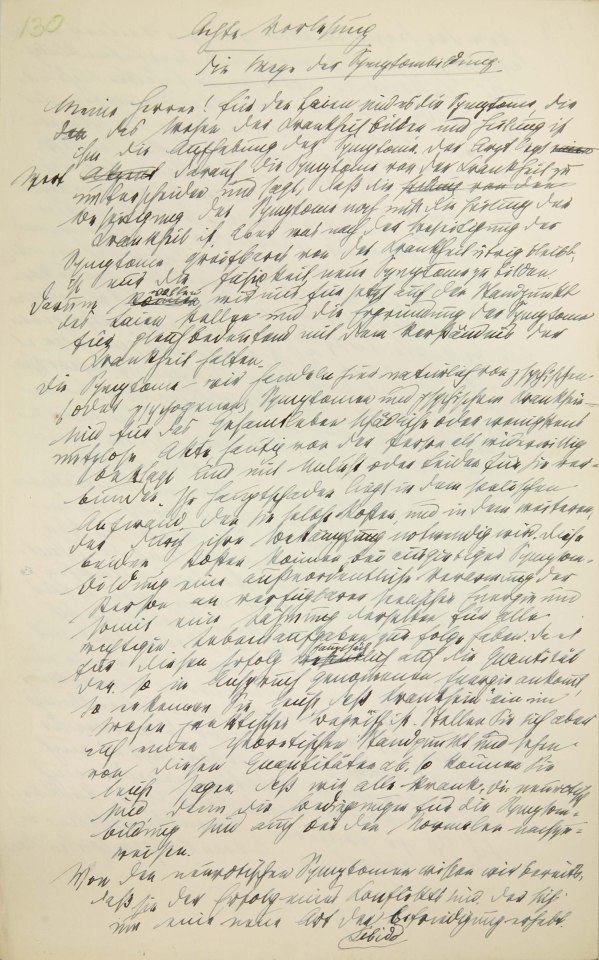 130
Achte Vorlesung
Die Wege der Symptombildung.
Meine Herren! Für den Laien sind es die Symptome, die
das Wesen der Krankheit bilden und Heilung ist
ihm die Aufhebung der Symptome. Der Arzt legt
Wert darauf die Symptome von der Krankheit zu
unterscheiden und sagt, daß die Heilung von den
Beseitigung der Symptome noch nicht die Heilung der
Krankheit ist. Aber was nach der Beseitigung der
Symptome Greifbares von der Krankheit übrig bleibt,
ist nur die Fähigkeit neue Symptome zu bilden.
Darum wollen wir uns für jetzt auf den Standpunkt
des Laien stellen und die Ergründung der Symptome
für gleichbedeutend mit dem Verständnis der
Krankheit halten.
Die Symptome – wir handeln hier natürlich von psychischen
(oder psychogenen) Symptomen und psychischem Krankhein –
sind für das Gesamtleben schädliche oder wenigstens
nutzlose Akte häufig von der Person als widerwillig
beklagt und mit Unlust oder Leiden für sie ver-
bunden. Ihr Hauptschaden liegt in dem seelischen
Aufwand, den sie selbst kosten, und in dem weiteren,
der durch ihre Bekämpfung notwendig wird. Diese
beiden Kosten können bei ausgiebiger Symptom-
bildung eine außerordentliche Verarmung der
Person an verfügbarer seelischer Energie und
somit eine Lähmung derselben für alle
wichtigen Lebensaufgaben zur Folge haben. Da es
für diesen Erfolg hauptsächlich auf die Quantität
der so in Anspruch genommenen Energie ankommt,
so erkennen Sie leicht, daß „Kranksein" ein im
Wesen praktischer Begriff ist. Stellen Sie sich aber
auf einen theoretischen Standpunkt und sehen
von diesen Quantitäten ab, so können Sie
leicht sagen, daß wir alle krank, d.i. neurotisch
sind, denn die Bedingungen für die Symptom-
bildung sind auch bei den Normalen nachzu-
weisen.
Von den neurotischen Symptomen wissen wir bereits,
daß sie der Erfolg eines Konflikts sind, der sich
um eine neue Art der Befriedigung erhebt.
Libido